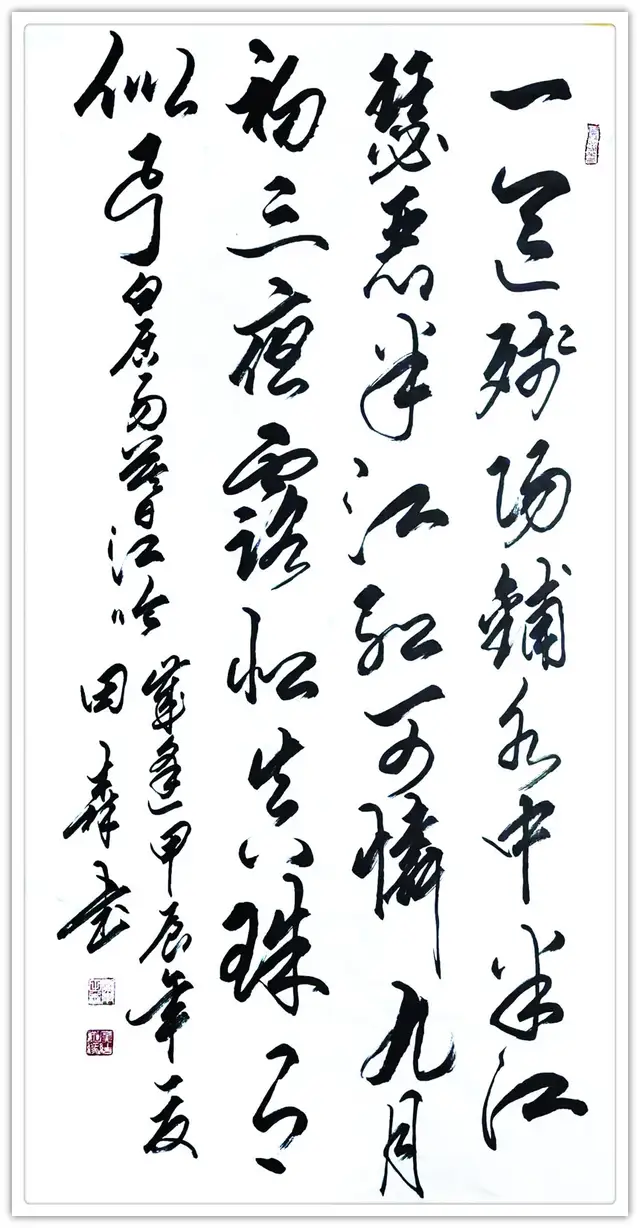 一道殘陽鋪水中半江
瑟瑟半江紅可憐九月
初三夜露似真珠月
似弓 白居易暮江吟
歲逢甲辰年夏
田森書